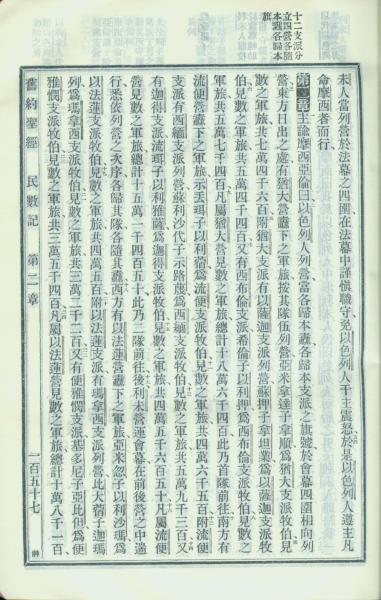 十二支派分
立四營各隨
本纛各歸本
旗
未人當列營於法幕之四圍在法幕中謹愼職守免以色列人干主震怒於是以色列人遵主凡
命摩西者而行
第二章主諭摩西亞倫曰以色列人列營當各歸本纛各歸本支派之旗號於會幕四圍相向列
營東方日出之處有猶大營纛下之軍旅按其隊伍列營亞米拿達子拿順爲猶大支派牧伯見
數之軍旅共七萬四千六百附猶大支派有以薩迦支派列營蘇押子拿坦業爲以薩迦支派牧
伯見數之軍旅共五萬四千四百又有西布倫支派希倫子以利押爲西布倫支派牧伯見數之
軍旅共五萬七千四百凡屬猶大營見數之軍旅總計十八萬六千四百此乃首隊前往南方有
流便營纛下之軍旅示丟珥子以利蓿爲流便支派牧伯見數之軍旅共四萬六千五百附流便
支派有西緬支派列營蘇利沙代子示路蔑爲西緬支派牧伯見數之軍旅共五萬九千三百又
有迦得支派流珥子以利雅薩爲迦得支派牧伯見數之軍旅共四萬五千六百五十凡屬流便
營見數之軍旅總計十五萬一千四百五十此乃二隊前往後利未營運會幕在前後營之中
行悉依列營之次序各歸其隊各隨其纛西方有以法蓮營纛下之軍旅亞米忽子以利沙瑪爲
以法蓮支派牧伯見數之軍旅共四萬五百附以法蓮支派有瑪拿西支派列營比大蓿子迦瑪
列爲瑪拿西支派牧伯見數之軍旅共三萬二千二百又有便雅憫支派基多尼子亞比但爲便
雅憫支派牧伯見數之軍旅共三萬五千四百凡屬以法蓮營見數之軍旅總計十萬八千一百
舊約聖經 民數記 第二章 一百五十七